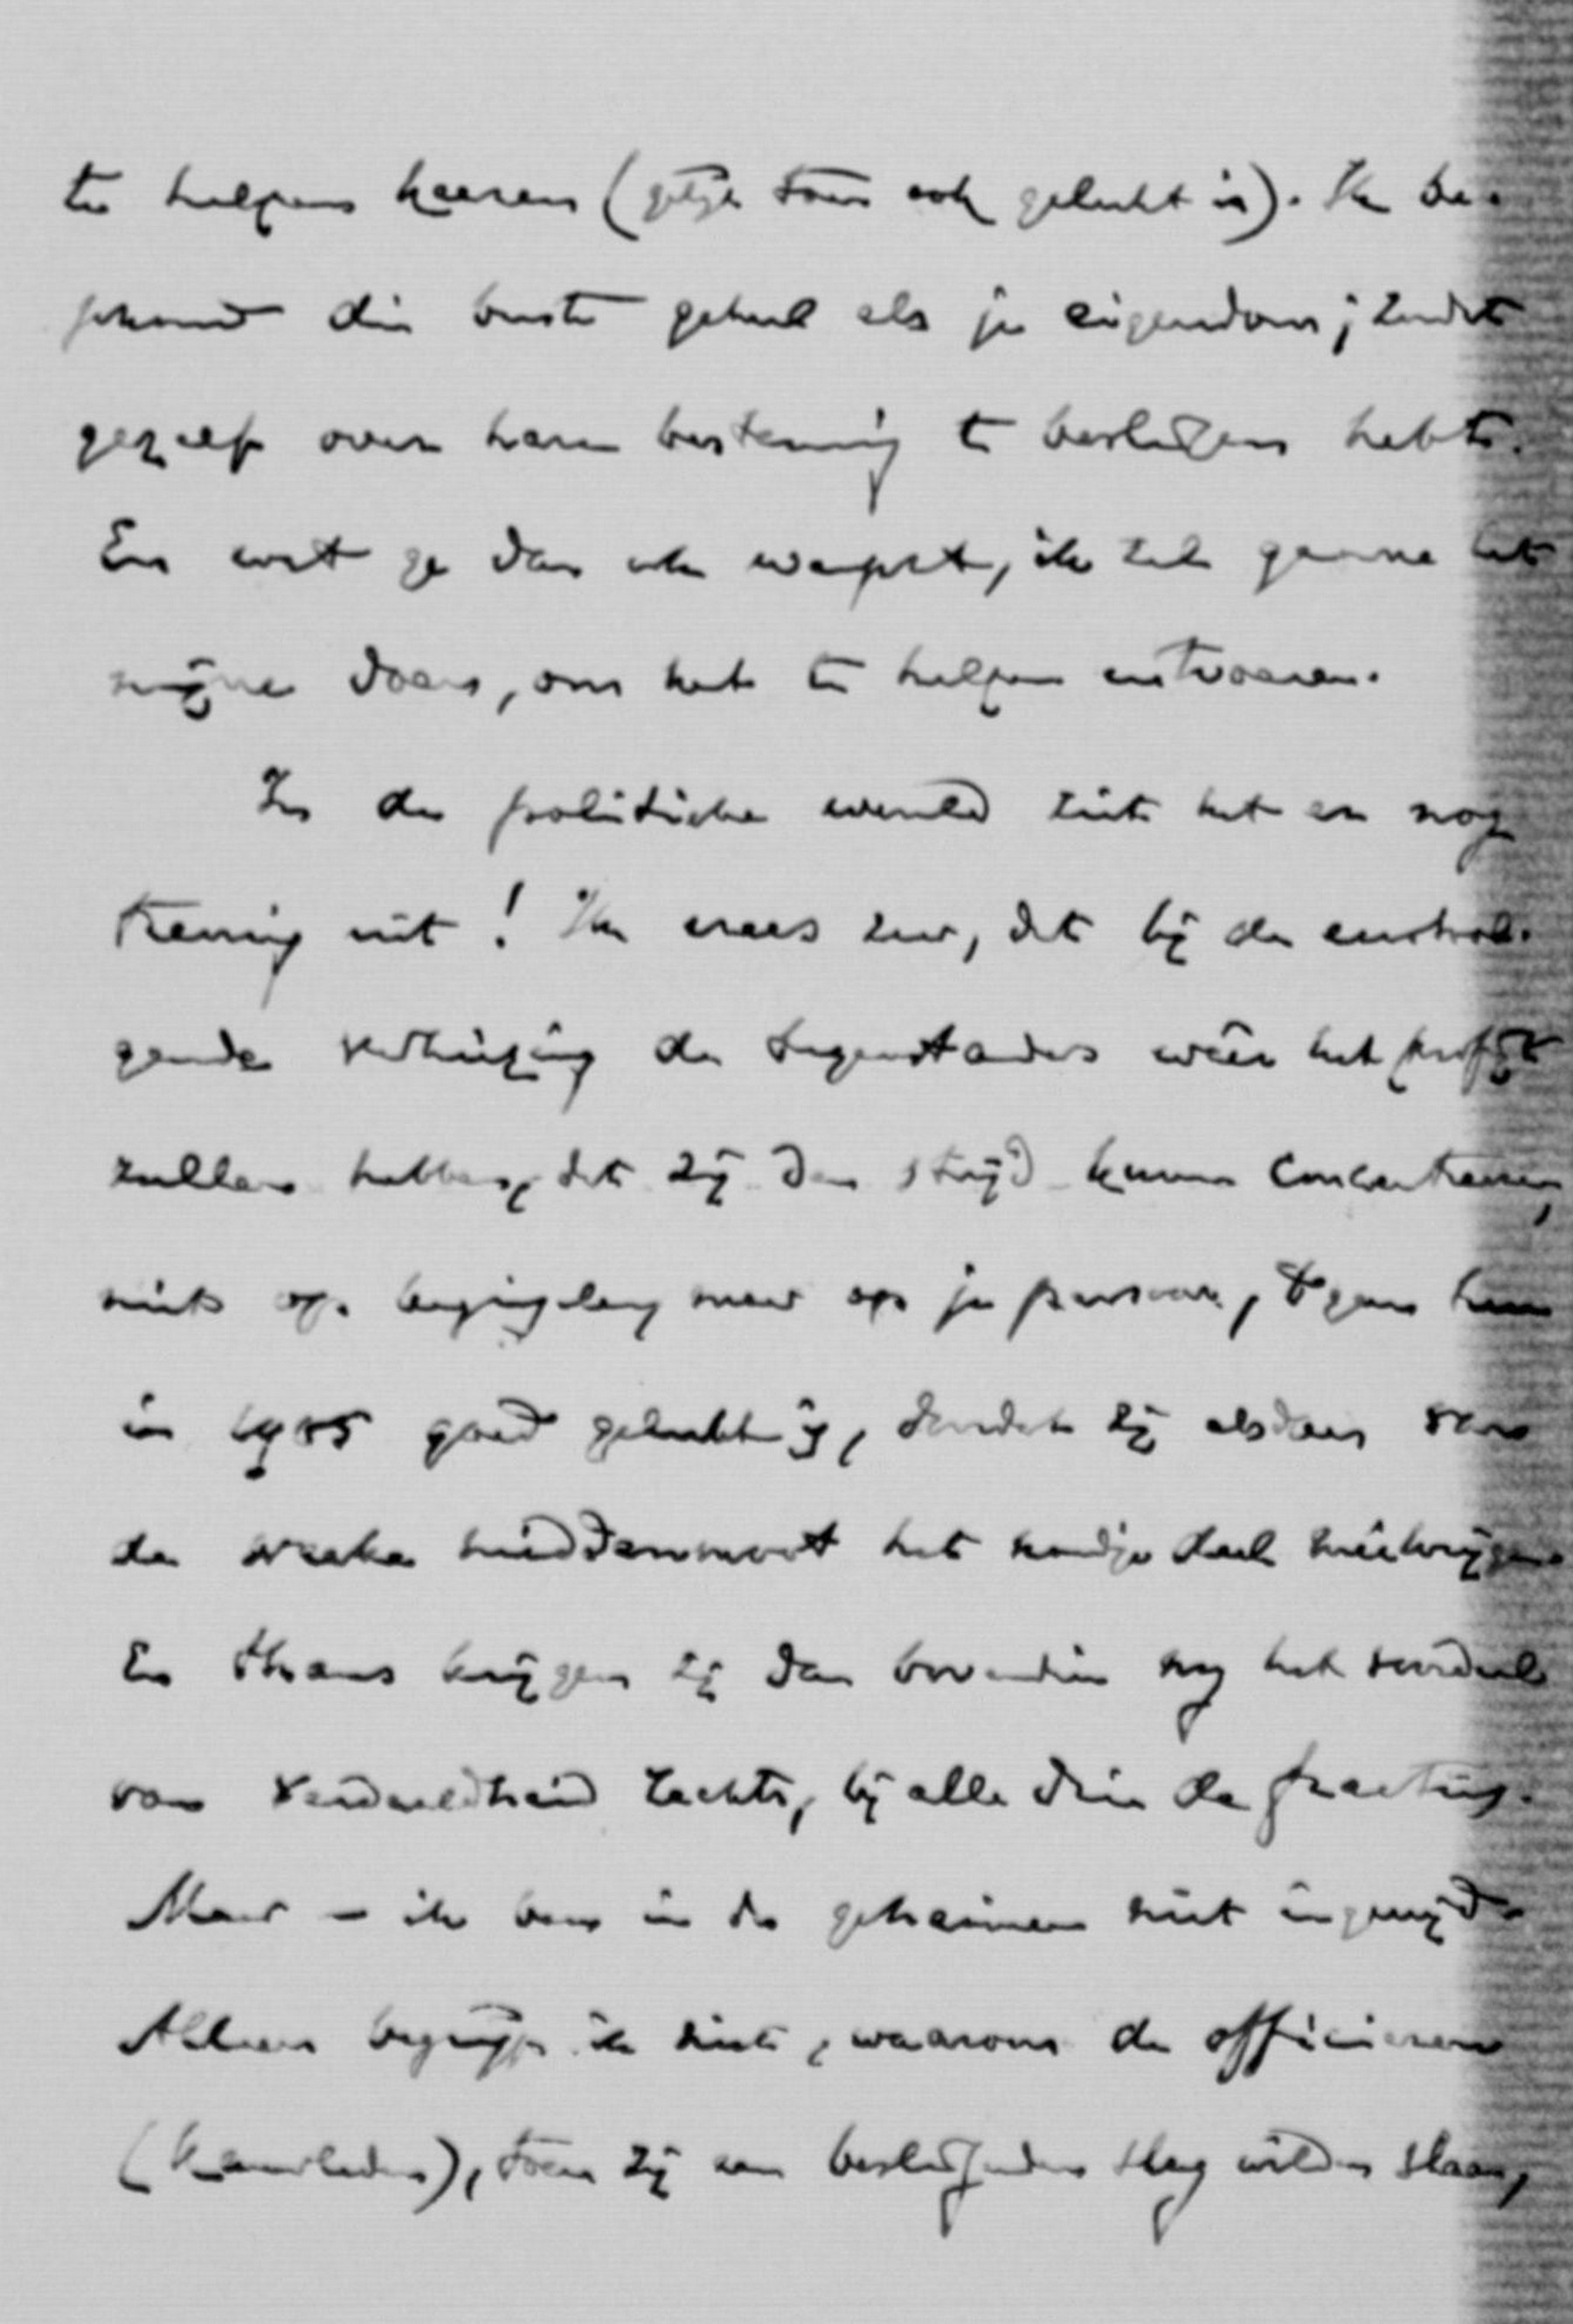 te helpen keeren (gelijk toen ook gelukt is). Ik be-
schouw die buste geheel als je eigendom; zoodat
ge zelf over hare bestemming te beslissen hebt.
En wat ge dan ook wenscht, ik zal gaarne het
mijne doen, om het te helpen uitvoeren.
In de politieke wereld ziet het er nog
treurig uit! Ik vrees zeer, dat bij de eerstvol-
gende verkiezing de tegenstanders weêr het profijt
zullen hebben, dat zij den strijd kunnen concentreeren,
niet op beginselen maar op je persoon, 't geen hun
in 1905 goed gelukt is, doordat zij alsdan van
de weeke middenmoot het noodige deel meêkrijgen.
En thans krijgen zij dan bovendien nog het voordeel
van verdeeldheid rechts, bij alle drie de fractiën.
Maar – ik ben in de geheimen niet ingewijd.
Alleen begrijp ik niet, waarom de officieren
(Kamerleden), toen zij een beslissenden slag wilden slaan,